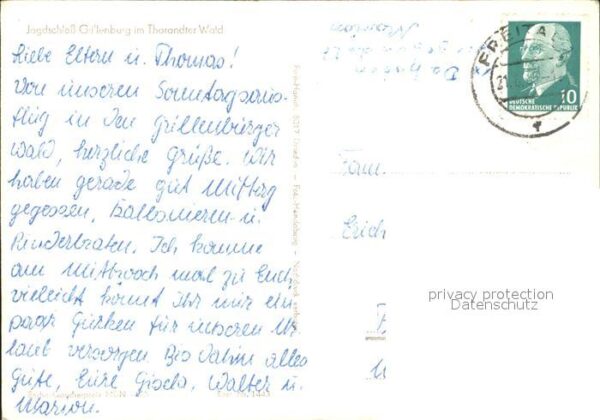 Jagdschloß Grillenburg im Tharandter Wald
Liebe Eltern u. Thomas!
Von unseren Sonntagsaus-
flug in den Grillenburger
Wald, herzliche Grüße. Wir
haben gerade gut Mittag
gegessen, Kaßlonieren u.
Rinderbraten. Ich komme
am Mittwoch mal zu Euch,
vielleicht könnt Ihr mir ein
paar Gurken für unseren Ur-
laub versorgen. Bis dahin alles
Gute, Eure Gisela, Walter u.
Marion.
FREITAL
DEUTSCHE
DEMOKRATISCHE REPUBLIK
10
Fam.
Erich
privacy protection
Datenschutz